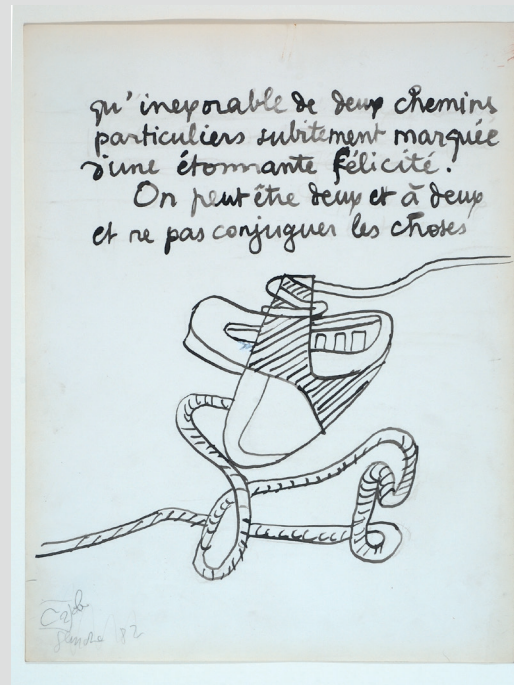 qu'inexorable de deux chemins
particuliers subitement marquée
d'une étonnante félicité.
On peut être deux et à deux
et ne pas conjuguer les choses
82